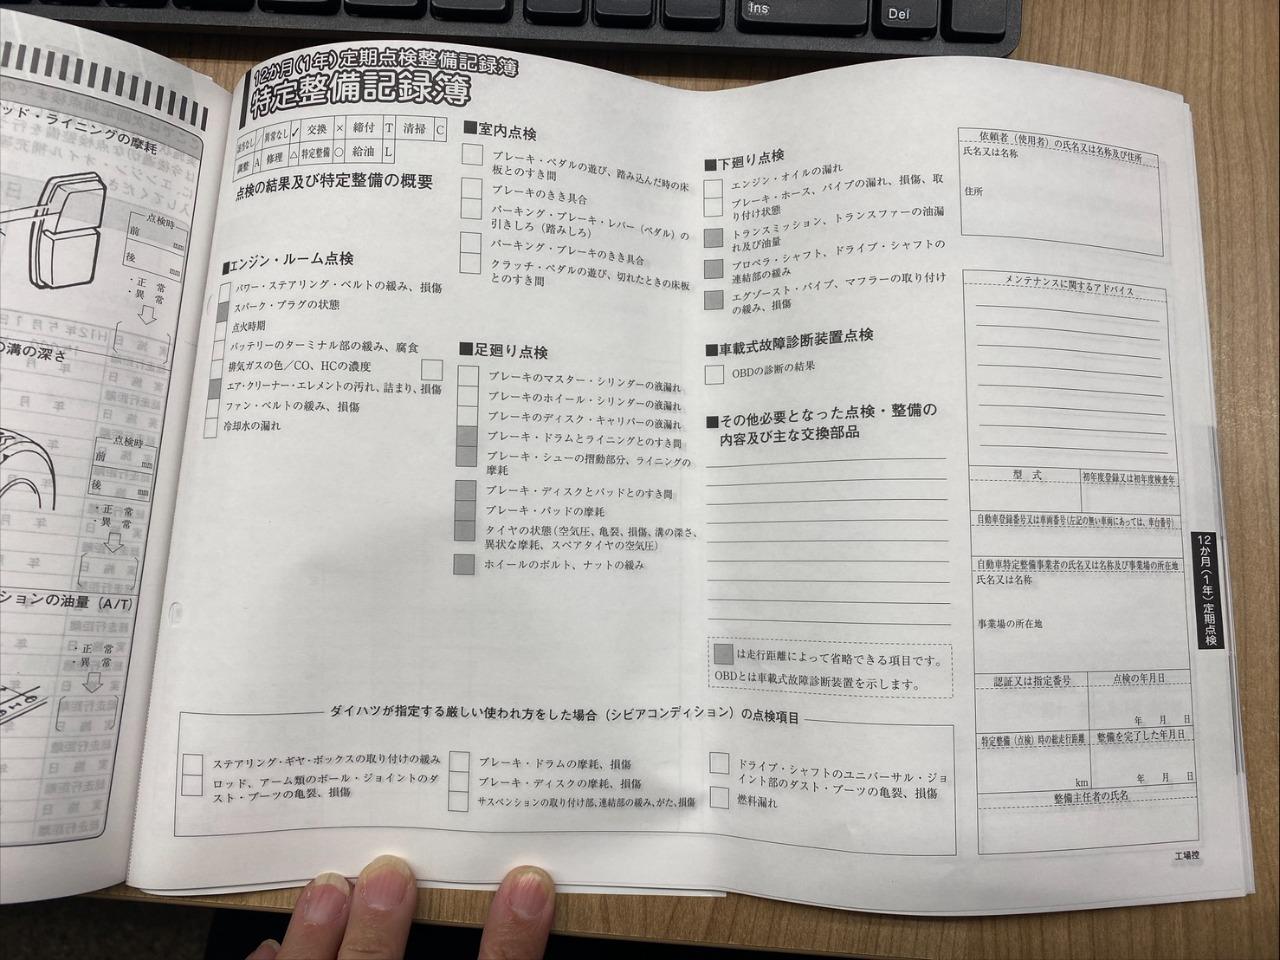 Ins
Del
ッド・ライニングの摩耗
点検時
前 mm
後 mm
・正 常
・異 常
の溝の深さ
点検時
前 mm
後 mm
・正 常
・異 常
ションの油量 (A/T)
・正 常
・異 常
12か月(1年)定期点検整備記録簿
特定整備記録簿
異常なし ✓ 交換 × 締付 T 清掃 C
調整 A 修理 △ 特定整備 ○ 給油 L
点検の結果及び特定整備の概要
■エンジン・ルーム点検
パワー・ステアリング・ベルトの緩み、損傷
スパーク・プラグの状態
点火時期
バッテリーのターミナル部の緩み、腐食
排気ガスの色/CO、HCの濃度
エア・クリーナー・エレメントの汚れ、詰まり、損傷
ファン・ベルトの緩み、損傷
冷却水の漏れ
■室内点検
ブレーキ・ペダルの遊び、踏み込んだ時の床
板とのすき間
ブレーキのきき具合
パーキング・ブレーキ・レバー(ペダル)の
引きしろ(踏みしろ)
パーキング・ブレーキのきき具合
クラッチ・ペダルの遊び、切れたときの床板
とのすき間
■足廻り点検
ブレーキのマスター・シリンダーの液漏れ
ブレーキのホイール・シリンダーの液漏れ
ブレーキのディスク・キャリパーの液漏れ
ブレーキ・ドラムとライニングとのすき間
ブレーキ・シューの摺動部分、ライニングの
摩耗
ブレーキ・ディスクとパッドとのすき間
ブレーキ・パッドの摩耗
タイヤの状態(空気圧、亀裂、損傷、溝の深さ、
異状な摩耗、スペアタイヤの空気圧)
ホイールのボルト、ナットの緩み
■下廻り点検
エンジン・オイルの漏れ
ブレーキ・ホース、パイプの漏れ、損傷、取
り付け状態
トランスミッション、トランスファーの油漏
れ及び油量
プロペラ・シャフト、ドライブ・シャフトの
連結部の緩み
エグゾースト・パイプ、マフラーの取り付け
の緩み、損傷
■車載式故障診断装置点検
OBDの診断の結果
■その他必要となった点検・整備の
内容及び主な交換部品
は走行距離によって省略できる項目です。
OBDとは車載式故障診断装置を示します。
依頼者(使用者)の氏名又は名称及び住所
氏名又は名称
住所
メンテナンスに関するアドバイス
型 式 初年度登録又は初年度検査年
自動車登録番号又は車両番号(左記の無い車両にあっては、車台番号)
自動車特定整備事業者の氏名又は名称及び事業場の所在地
氏名又は名称
事業場の所在地
認証又は指定番号 点検の年月日
年 月 日
特定整備(点検)時の総走行距離 整備を完了した年月日
km 年 月 日
整備主任者の氏名
工場控
12か月(1年)定期点検
ダイハツが指定する厳しい使われ方をした場合(シビアコンディション)の点検項目
ステアリング・ギヤ・ボックスの取り付けの緩み
ロッド、アーム類のボール・ジョイントのダ
スト・ブーツの亀裂、損傷
ブレーキ・ドラムの摩耗、損傷
ブレーキ・ディスクの摩耗、損傷
サスペンションの取り付け部、連結部の緩み、がた、損傷
ドライブ・シャフトのユニバーサル・ジョ
イント部のダスト・ブーツの亀裂、損傷
燃料漏れ